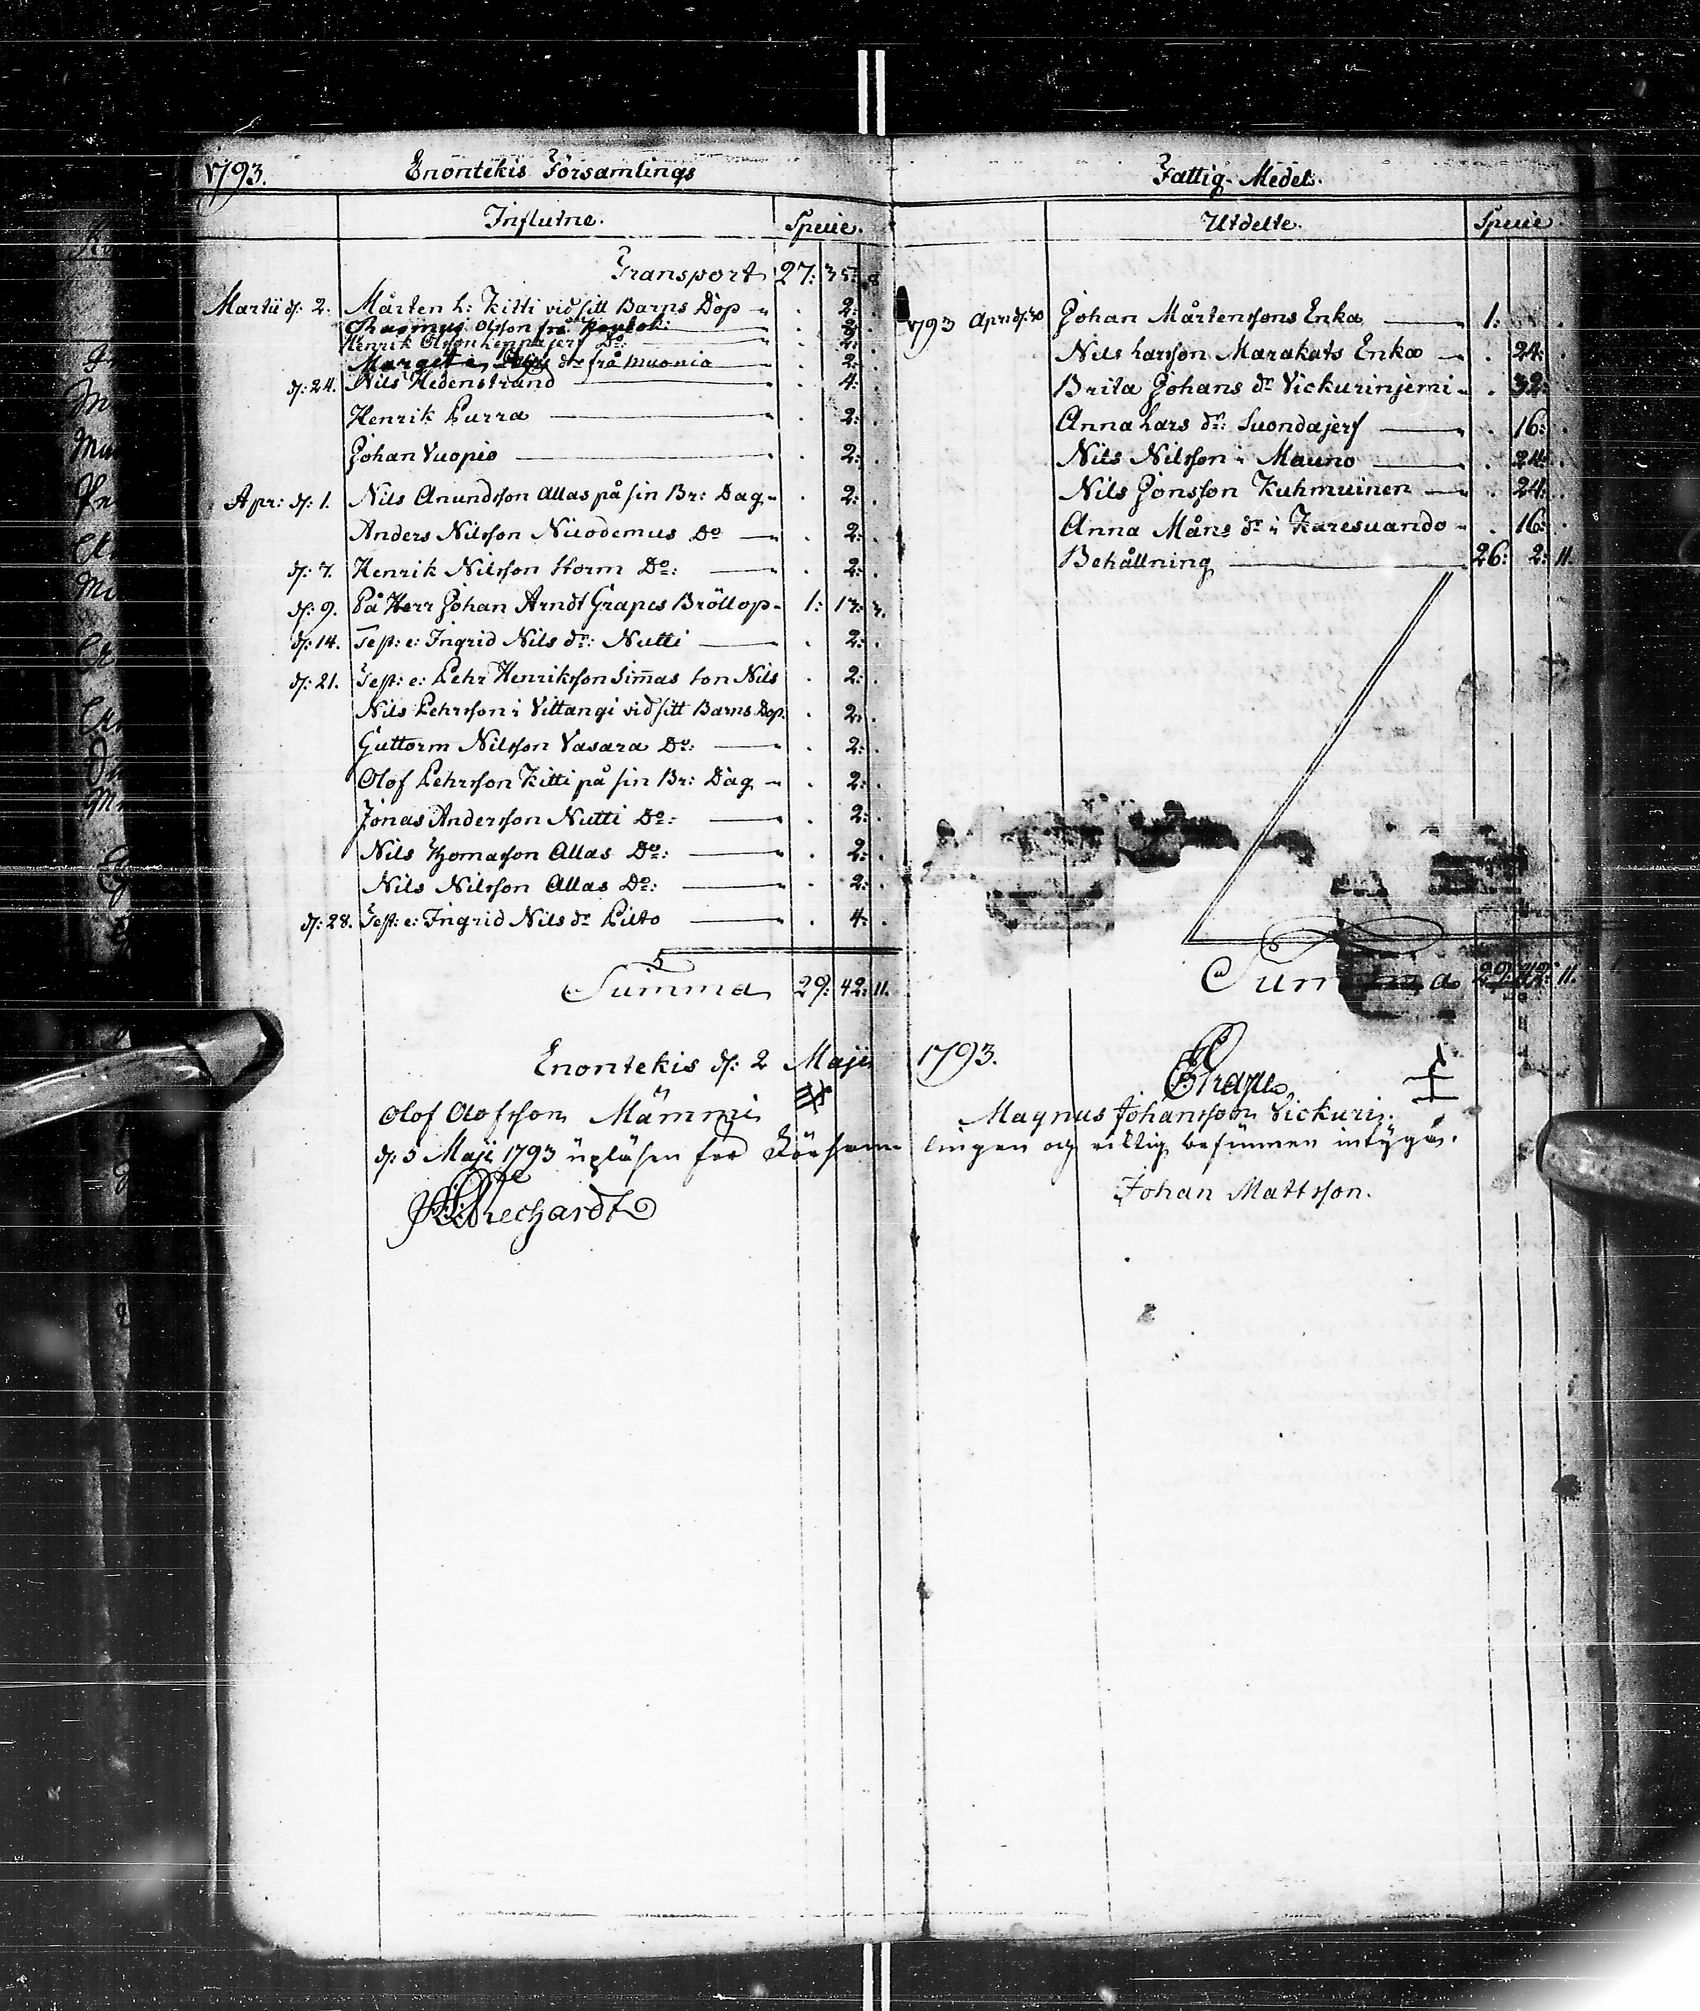 1793. Enontekis Församlings
Influtne. Specie.
Transport 27: 35: 8
Martii d: 2. Mårten L: Kitti vid sitt Barns Dop 2:
Rasmus Olsson från 2:
Henrik Olsson Leppäjerf Do: 2:
Marget dr från Muonio 2:
d: 24. Nils Hedenstrand 4:
Henrik Purra 2:
Johan Vuopio 2:
Apr: d: 1. Nils Anundsson Allas på sin Br: Dag 2:
Anders Nilsson Nicodemus Do 2:
d: 7. Henrik Nilsson Storm Do: 2:
d: 9. På Herr Johan Arndt Grapes Bröllop 1: 17: 3.
d: 14. Test: e: Ingrid Nils dr: Nutti 2:
d: 21. Test: e: Pehr Henriksson Simmas Son Nils 2:
Nils Pehrsson i Vittangi vid sitt Barns Dop. 2:
Guttorm Nilsson Vasara Do: 2:
Olof Pehrsson Kitti på sin Br: Dag 2:
Jonas Andersson Nutti Do: 2:
Nils Thomasson Allas Do: 2:
Nils Nilsson Allas Do: 2:
d: 28. Test: e: Ingrid Nils dr Pilto 4:
Summa 29: 42: 11.
Fattig-Medel.
Utdelte. Specie.
1793 April d: 30 Johan Mårtenssons Enka 1:
Nils Larsson Marakats Enka 24:
Brita Johans dr Vickurinjemi 32:
Anna Lars dr: Suondajerf 16:
Nils Nilsson i Mauno 24:
Nils Jonsson Kuhmuinen 24:
Anna Måns dr i Karesuando 16:
Behållning 26: 2: 11.
Summa 29: 42: 11.
Enontekis d: 2 Maji 1793.
EGrape
Olof Olofsson Mämmi Magnus Johansson Vickuri.
d: 5 Maji 1793 upläsen för Församlingen och riktig befunnen intygas.
Johan Mattsson.